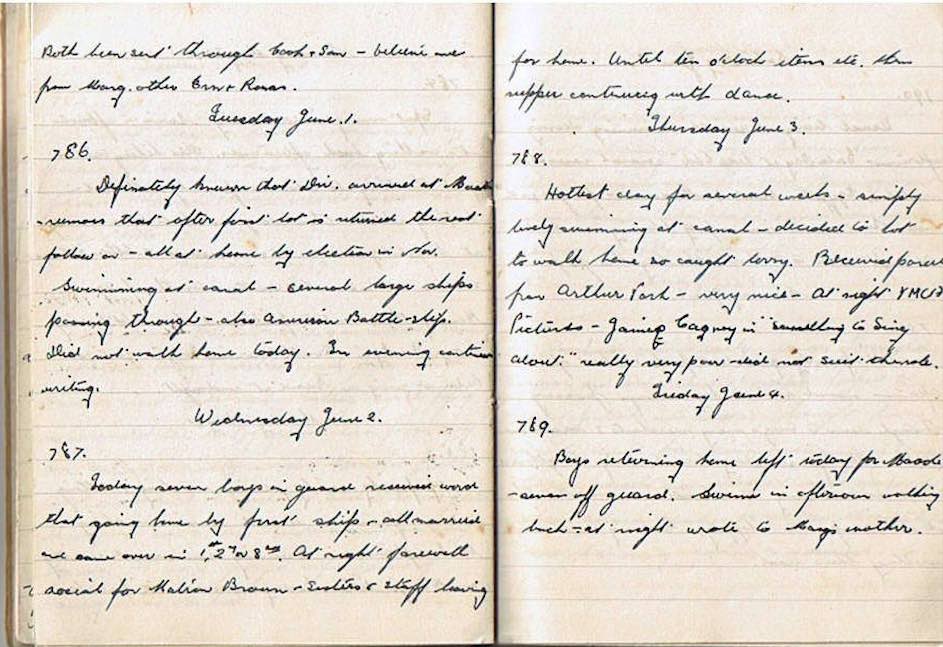 Both been sent through Cook & Son - believe one
from Marg. other Ern & Renas.
Tuesday June.1.
786.
Definately known that Div. arrived at Maadi
- rumors that after first lot is returned the rest
follow on - all at home by election in Nov.
Swimming at canal - several large ships
passing through - also American Battle-ship.
Did not walk home today. In evening continue
writing.
Wednesday June 2.
787.
Today seven boys in guard received word
that going home by first ship - all married
and came over in 1, 2nd or 8th. At night farewell
social for Matron Brown - Sisters & staff leaving
for home. Until ten o'clock items etc. then
supper continuing with dance.
Thursday June 3.
788.
Hottest day for several weeks - simply
lovely swimming at canal - decided to hot
to walk home so caught lorry. Received parcel
from Arthur - very nice - At night YMCA
Pictures - James Cagney in "Something to Sing
about" really very poor - did not suit the role.
Friday June 4.
789.
Boys returning home left today for Maadi
- seven off guard. Swim in afternoon walking
back - at night wrote to Marg's mother.